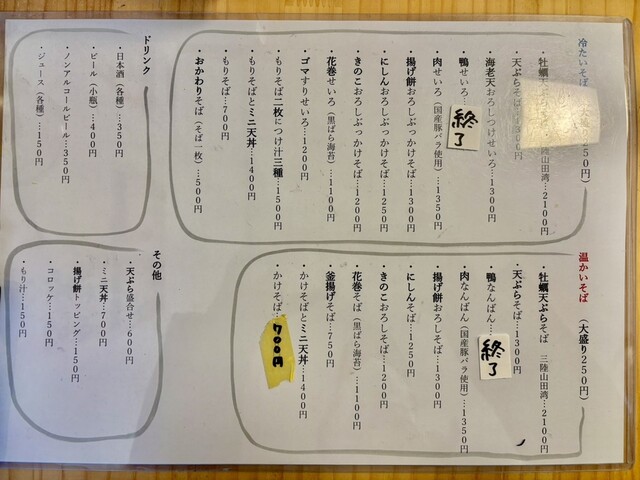 冷たいそば
250円)
牡蠣天
陸山田湾…2100円
天ぷらそば…1300円
海老天おろしつけせいろ…1300円
鴨せいろ
終了
肉せいろ(国産豚バラ使用)…1350円
揚げ餅おろしぶっかけそば…1300円
にしんおろしぶっかけそば…1250円
きのこおろしぶっかけそば…1200円
花巻せいろ(黒ばら海苔)…1100円
ゴマすりせいろ…1200円
もりそば二枚につけ汁三種…1500円
もりそばとミニ天丼…1400円
もりそば…700円
おかわりそば(そば一枚)…500円
ドリンク
日本酒(各種)…350円
ビール(小瓶)…400円
ノンアルコールビール…350円
ジュース(各種)…150円
温かいそば (大盛り250円)
牡蠣天ぷらそば 三陸山田湾…2100円
天ぷらそば…1300円
鴨なんばん…
終了
肉なんばん(国産豚バラ使用)…1350円
揚げ餅おろしそば…1300円
にしんそば…1250円
きのこおろしそば…1200円
花巻そば(黒ばら海苔)…1100円
釜揚げそば…750円
かけそばとミニ天丼…1400円
かけそば…
700円
その他
天ぷら盛合せ…600円
ミニ天丼…700円
揚げ餅トッピング…150円
コロッケ…150円
もり汁…150円